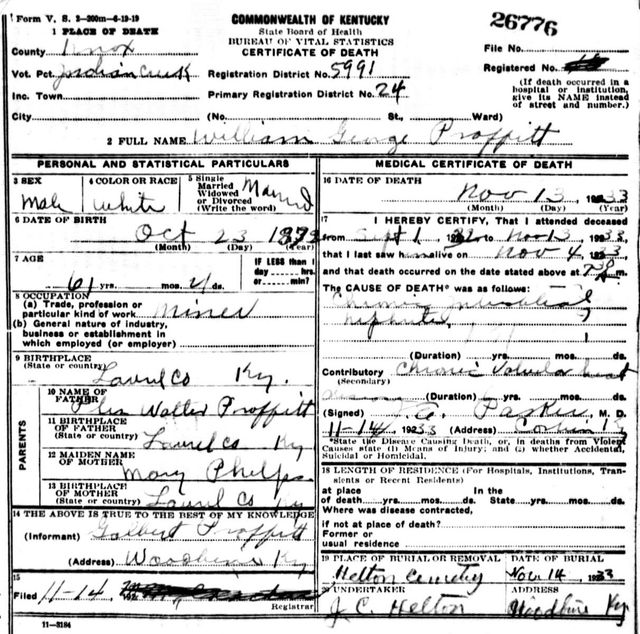 Form V. S. 2-200m-6-19-19
1 PLACE OF DEATH
County Knox
Vot. Pct. Indian Creek
Inc. Town
City
COMMONWEALTH OF KENTUCKY
State Board of Health
BUREAU OF VITAL STATISTICS
CERTIFICATE OF DEATH
Registration District No. 5991
Primary Registration District No. 24
(No. St., Ward)
26776
File No.
Registered No.
(If death occurred in a
hospital or institution,
give its NAME instead
of street and number.)
2 FULL NAME William George Proffitt
PERSONAL AND STATISTICAL PARTICULARS
3 SEX
Male
4 COLOR OR RACE
White
5 Single
Married
Widowed
or Divorced
(Write the word)
Married
6 DATE OF BIRTH
Oct 23 1873
(Month) (Day) (Year)
7 AGE
61 yrs. mos. ds.
IF LESS than 1
day hrs.
or min?
8 OCCUPATION
(a) Trade, profession or
particular kind of work Miner
(b) General nature of industry,
business or establishment in
which employed (or employer)
9 BIRTHPLACE
(State or country)
Laurel Co Ky.
PARENTS
10 NAME OF
FATHER Walter Proffitt
11 BIRTHPLACE
OF FATHER
(State or country) Laurel Co Ky
12 MAIDEN NAME
OF MOTHER Mary Phelps
13 BIRTHPLACE
OF MOTHER
(State or country) Laurel Co Ky
14 THE ABOVE IS TRUE TO THE BEST OF MY KNOWLEDGE
(Informant) Golbert Proffitt
(Address) Woodbine Ky
15
Filed 11-14 192
Registrar
11-3184
MEDICAL CERTIFICATE OF DEATH
16 DATE OF DEATH
Nov 13, 1933
(Month) (Day) (Year)
17 I HEREBY CERTIFY, That I attended deceased
from Sept 1 1932 to Nov 13 1933,
that I last saw him alive on Nov 4 1933
and that death occurred on the date stated above at M.
The CAUSE OF DEATH* was as follows:
Chronic Interstitial
nephritis
(Duration) yrs. mos. ds.
Contributory Chronic Valvular heart
(Secondary)
(Duration) yrs. mos. ds.
(Signed) Parker M. D.
11-14 1933 (Address) Corbin Ky
*State the Disease Causing Death, or, in deaths from Violent
Causes state (1) Means of Injury; and (2) whether Accidental,
Suicidal or Homicidal.
18 LENGTH OF RESIDENCE (For Hospitals, Institutions, Tran-
sients or Recent Residents)
At place In the
of death yrs. mos. ds. State yrs. mos. ds.
Where was disease contracted,
if not at place of death?
Former or
usual residence
19 PLACE OF BURIAL OR REMOVAL
Helton Cemetery
DATE OF BURIAL
Nov. 14, 1933
20 UNDERTAKER
J. C. Helton
ADDRESS
Woodbine Ky